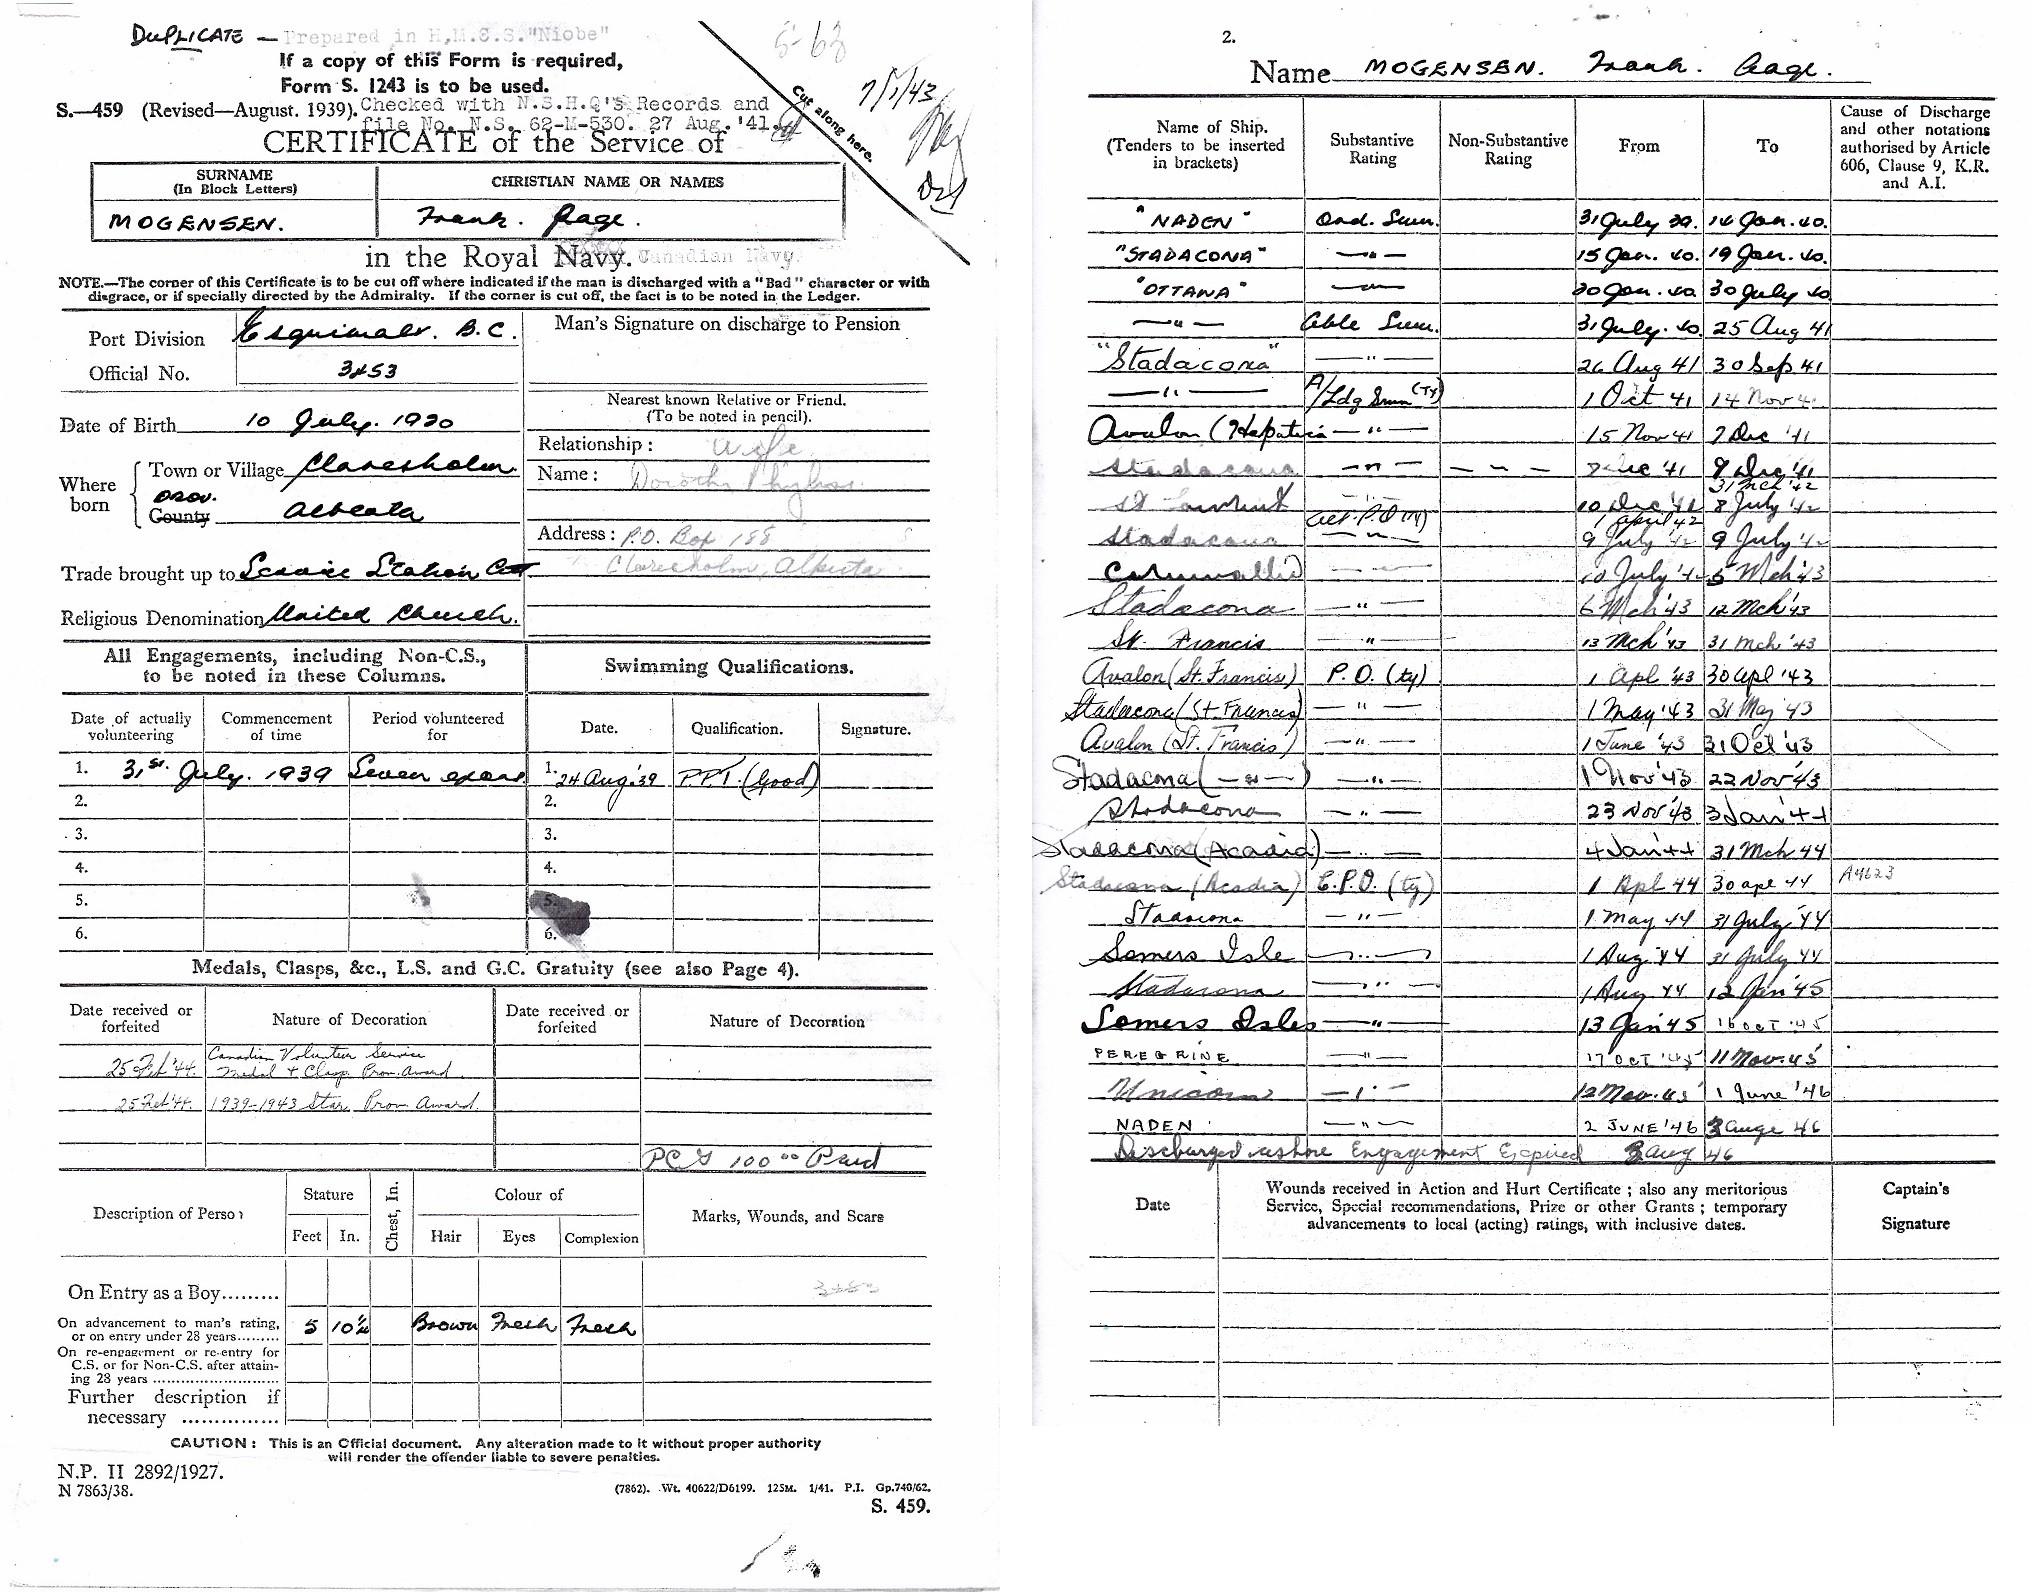 DUPLICATE — Prepared in H.M.C.S. "Niobe"
If a copy of this Form is required,
Form S. 1243 is to be used.
S.—459 (Revised—August, 1939). Checked with N.S.H.Q's Records and
file No. N.S. 62-M-530. 27 Aug. '41.
7/1/43
Cut along here.
CERTIFICATE of the Service of
SURNAME
(In Block Letters)
CHRISTIAN NAME OR NAMES
MOGENSEN. Frank. Aage.
in the Royal Navy. Canadian Navy.
NOTE.—The corner of this Certificate is to be cut off where indicated if the man is discharged with a "Bad" character or with
disgrace, or if specially directed by the Admiralty. If the corner is cut off, the fact is to be noted in the Ledger.
Port Division Esquimalt. B.C.
Official No. 3453
Man's Signature on discharge to Pension
Date of Birth 10 July. 1920
Where born
Town or Village Claresholm
Prov.
County Alberta
Trade brought up to Service Station
Religious Denomination United Church.
Nearest known Relative or Friend.
(To be noted in pencil).
Relationship: Wife
Name: Dorothy Phyliss
Address: P.O. Box 188
Claresholm, Alberta
All Engagements, including Non-C.S.,
to be noted in these Columns.
Swimming Qualifications.
Date of actually volunteering
Commencement of time
Period volunteered for
Date.
Qualification.
Signature.
1. 31st. July. 1939 Seven years 1. 24 Aug '39 P.P.T. (Good)
2. 2.
3. 3.
4. 4.
5. 5.
6. 6.
Medals, Clasps, &c., L.S. and G.C. Gratuity (see also Page 4).
Date received or forfeited
Nature of Decoration
Date received or forfeited
Nature of Decoration
25 Feb '44. Canadian Volunteer Service
Medal + Clasp Prom. Award
25 Feb '44. 1939-1943 Star. Prom Award.
PCG 100°° Paid
Description of Person
Stature
Feet
In.
Chest, In.
Colour of
Hair
Eyes
Complexion
Marks, Wounds, and Scars
On Entry as a Boy.........
3453
On advancement to man's rating,
or on entry under 28 years.........
5 10½ Brown Fresh Fresh
On re-engagement or re-entry for
C.S. or for Non-C.S. after attain-
ing 28 years
Further description if
necessary
CAUTION: This is an Official document. Any alteration made to it without proper authority
will render the offender liable to severe penalties.
N.P. II 2892/1927.
N 7863/38.
(7862). Wt. 40622/D6199. 125M. 1/41. P.I. Gp.740/62.
S. 459.
2.
Name MOGENSEN. Frank. Aage.
Name of Ship.
(Tenders to be inserted
in brackets)
Substantive
Rating
Non-Substantive
Rating
From
To
Cause of Discharge
and other notations
authorised by Article
606, Clause 9, K.R.
and A.I.
"NADEN" Ord. Smn. 31 July 39. 14 Jan. 40.
"STADACONA" —"— 15 Jan. 40. 19 Jan. 40.
"OTTAWA" —"— 20 Jan. 40. 30 July 40
—"— Able Smn. 31 July. 40. 25 Aug 41
"Stadacona" —"— 26 Aug 41 30 Sep 41
—"— A/Ldg Smn (Ty) 1 Oct 41 14 Nov 41
Avalon (Hepatica —"— 15 Nov 41 7 Dec '41
Stadacona —"— —"— Dec '41 9 Dec '41
31 Mch '42
St Laurent —"— 10 Dec '41 8 July '42
Act. P.O (Ty) 1 April '42
Stadacona —"— 9 July '42 9 July '42
Cornwallis —"— 10 July '42 5 Mch '43
Stadacona —"— 6 Mch '43 12 Mch '43
St. Francis —"— 13 Mch '43 31 Mch '43
Avalon (St. Francis) P.O. (ty) 1 Apl '43 30 Apl '43
Stadacona (St. Francis) —"— 1 May '43 31 May '43
Avalon (St. Francis) —"— 1 June '43 31 Oct '43
Stadacona (—"—) —"— 1 Nov '43 22 Nov '43
Stadacona —"— 23 Nov '43 3 Jan '44
Stadacona (Acadia) —"— 4 Jan 44 31 Mch 44
Stadacona (Acadia) C.P.O. (ty) 1 Apl 44 30 apl 44 A4623
Stadacona —"— 1 May 44 31 July '44
Somers Isle —"— 1 Aug '44 31 July 44
Stadacona —"— 1 Aug 44 12 Jan '45
Somers Isles —"— 13 Jan '45 16 OCT '45
PEREGRINE —"— 17 OCT '45 11 Nov. 45
Unicorn —"— 12 Nov. 45 1 June '46
NADEN —"— 2 JUNE '46 3 Aug 46
Discharged ashore Engagement Expired 3 Aug 46
Date
Wounds received in Action and Hurt Certificate; also any meritorious
Service, Special recommendations, Prize or other Grants; temporary
advancements to local (acting) ratings, with inclusive dates.
Captain's
Signature